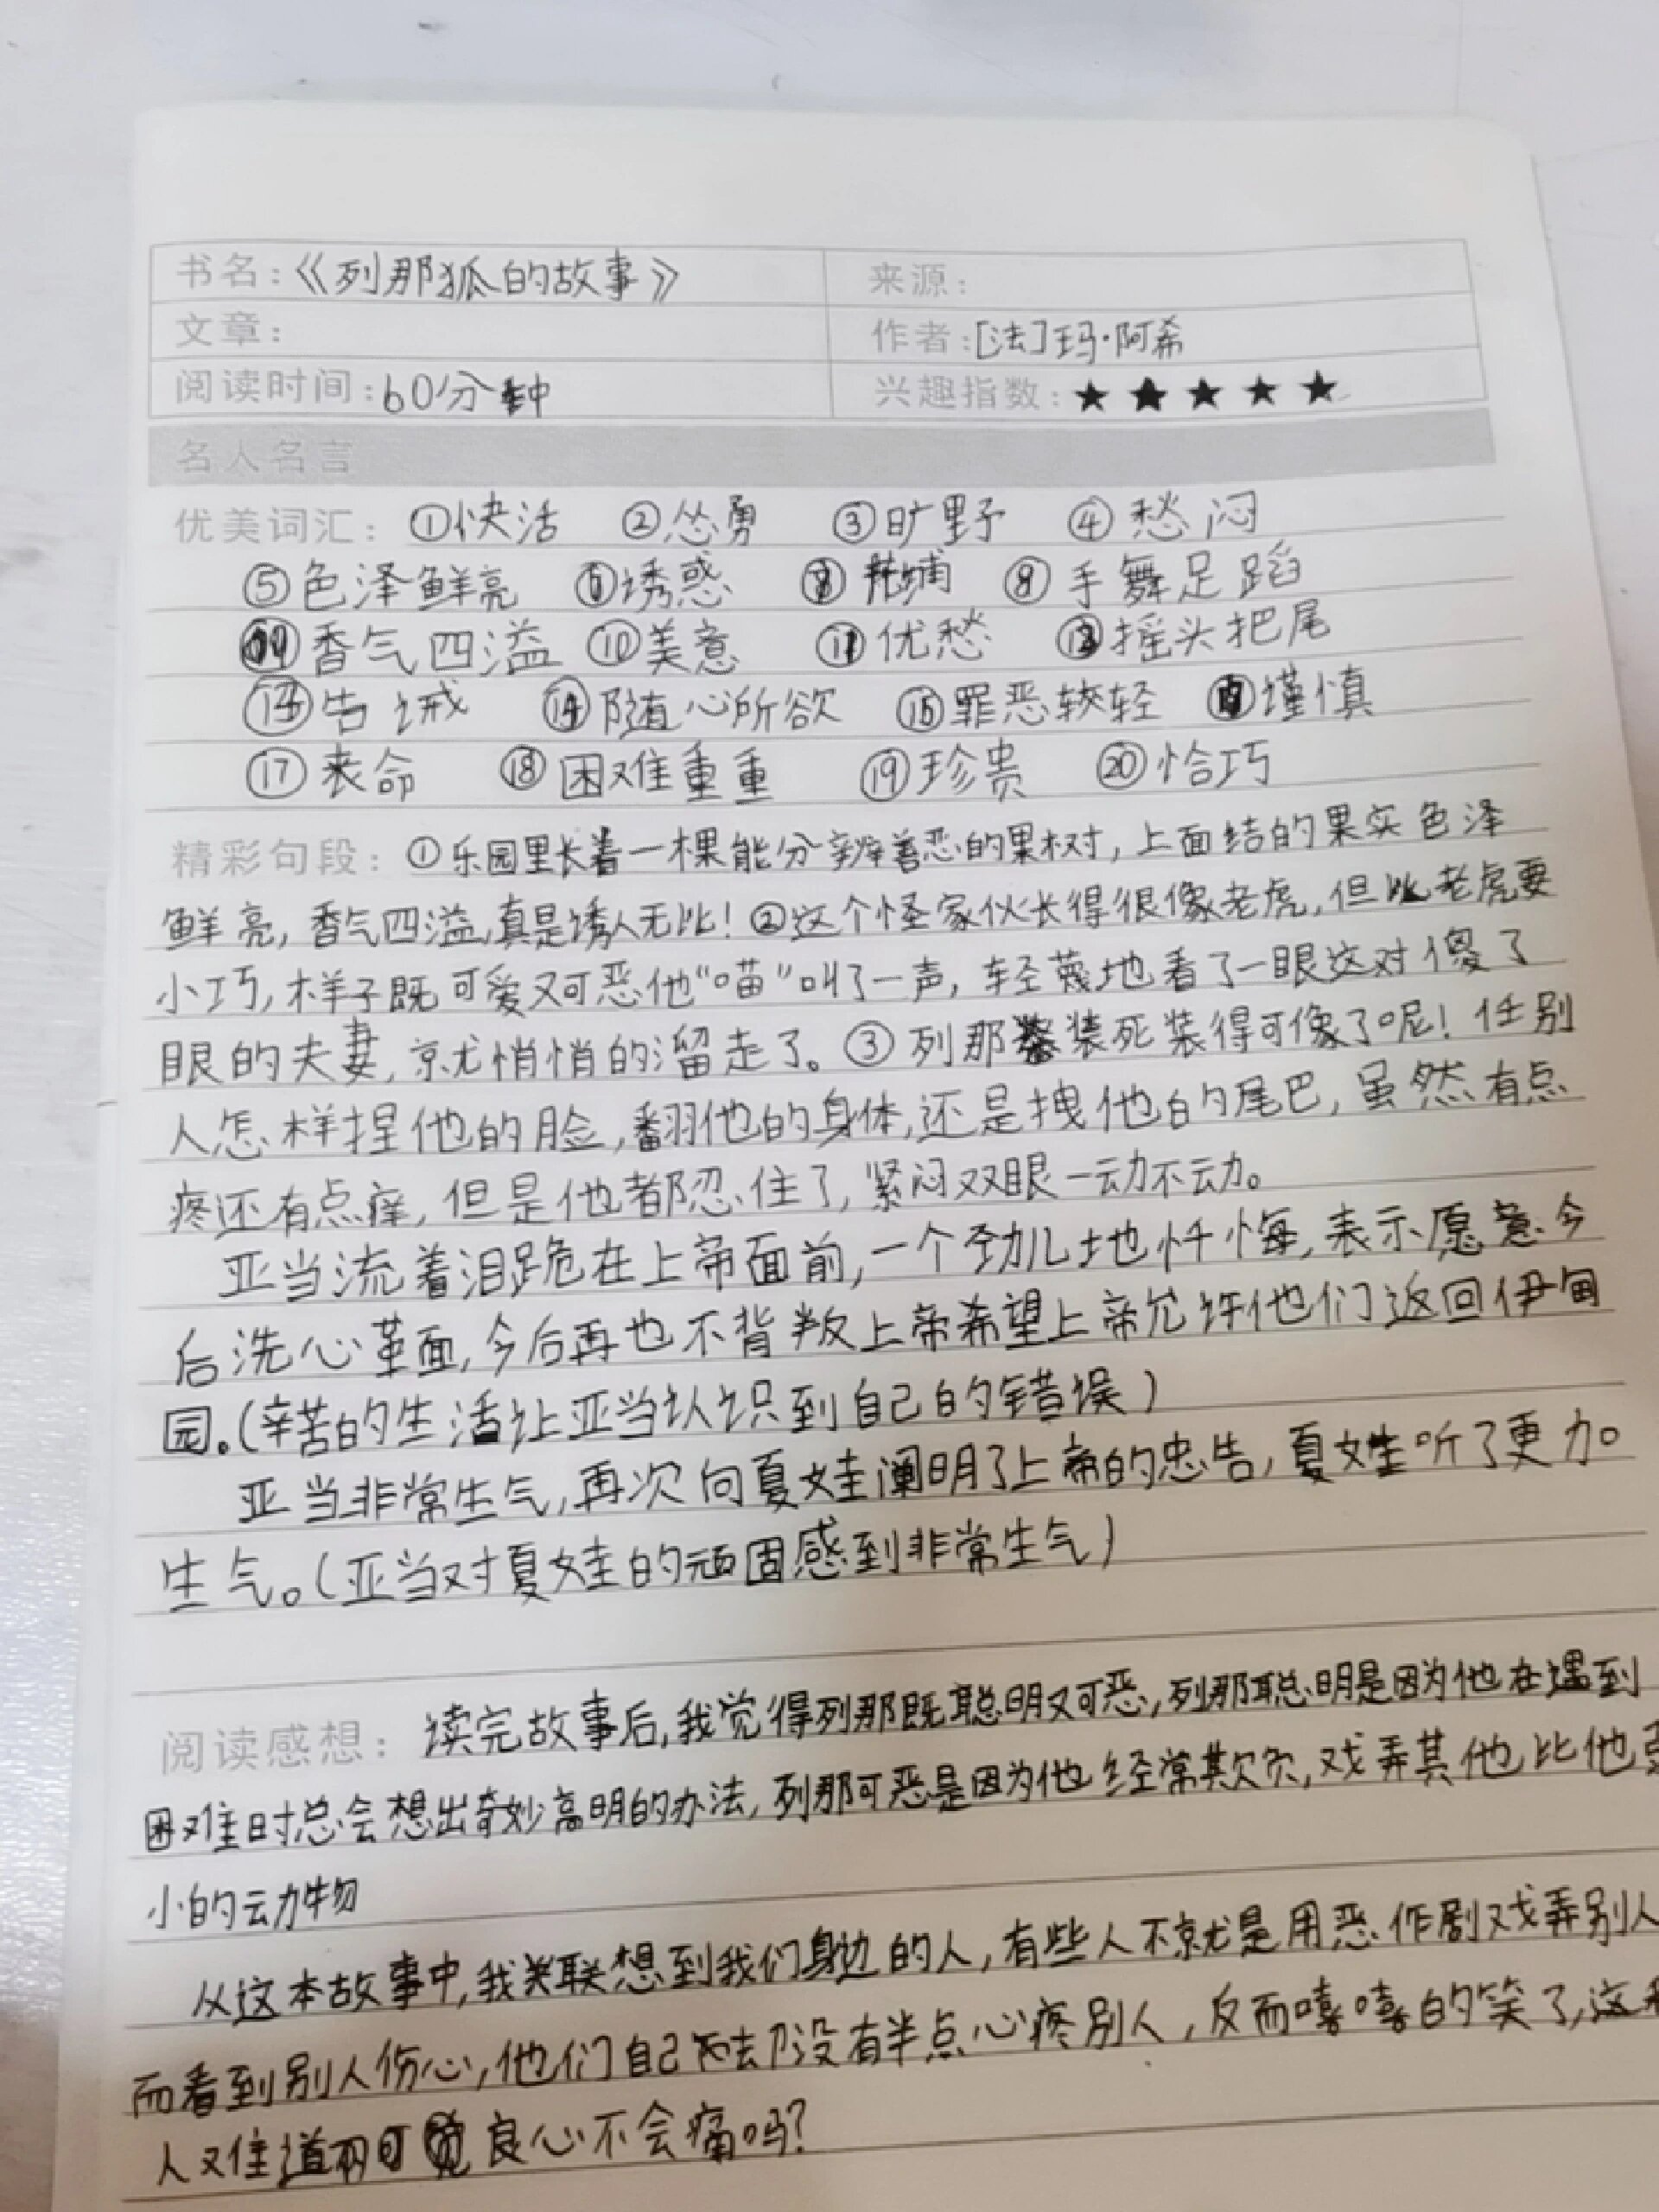 书名：《列那狐的故事》 来源：
文章： 作者：[法]玛·阿希
阅读时间：60分钟 兴趣指数：★★★★★
名人名言
优美词汇：①快活 ②怂勇 ③旷野 ④愁闷
⑤色泽鲜亮 ⑥诱惑 ⑦ ⑧手舞足蹈
香气四溢 ⑩美意 ⑪优愁 ⑫摇头把尾
⑬告诫 ⑭随心所欲 ⑮罪恶较轻 谨慎
⑰丧命 ⑱困难重重 ⑲珍贵 ⑳恰巧
精彩句段：①乐园里长着一棵能分辨善恶的果树，上面结的果实色泽
鲜亮，香气四溢，真是诱人无比！②这个怪家伙长得很像老虎，但比老虎要
小巧，样子既可爱又可恶他“喵”叫了一声，轻蔑地看了一眼这对傻了
眼的夫妻，就悄悄的溜走了。③列那装死装得可像了呢！任别
人怎样捏他的脸，翻他的身体，还是拽他的尾巴，虽然有点
疼还有点痒，但是他都忍住了，紧闷双眼一动不动。
亚当流着泪跪在上帝面前，一个劲儿地忏悔，表示愿意今
后洗心革面，今后再也不背叛上帝希望上帝允许他们返回伊甸
园。（辛苦的生活让亚当认识到自己的错误）
亚当非常生气，再次向夏娃阐明了上帝的忠告，夏娃听了更加
生气。（亚当对夏娃的顽固感到非常生气）
阅读感想：读完故事后，我觉得列那既聪明又可恶，列那聪明是因为他在遇到
困难时总会想出奇妙高明的办法，列那可恶是因为他经常欺负，戏弄其他比他
小的动物
从这本故事中，我关联想到我们身边的人，有些人不就是用恶作剧戏弄别人
而看到别人伤心，他们自己却没有半点心疼别人，反而嘻嘻的笑了，这
人又难道 良心不会痛吗？